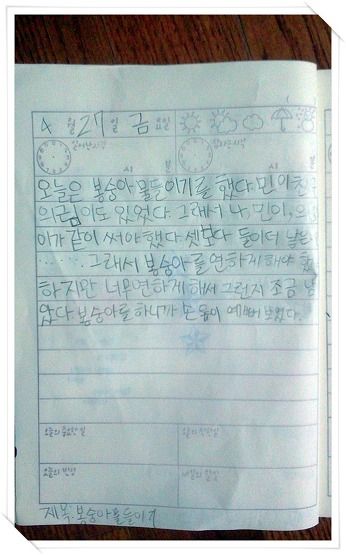 4월 27일 금요일
일어난시각
시 분
시 분
오늘은 봉숭아 물들이기를 했다. 민이친
의림이도 있었다. 그래서 나, 민이, 의
아가 같이 써야 했다. 셋보다 둘이더 날텐
...... 그래서 봉숭아를 연하게 해야 했
하지만 너무연하게 해서 그런지 조금 남
았다. 봉숭아를 하니까 손톱이 예뻐 보였다.
오늘의 중요한 일
오늘의 착한일
오늘의 반성
내일의 할일
제목:봉숭아물들이기